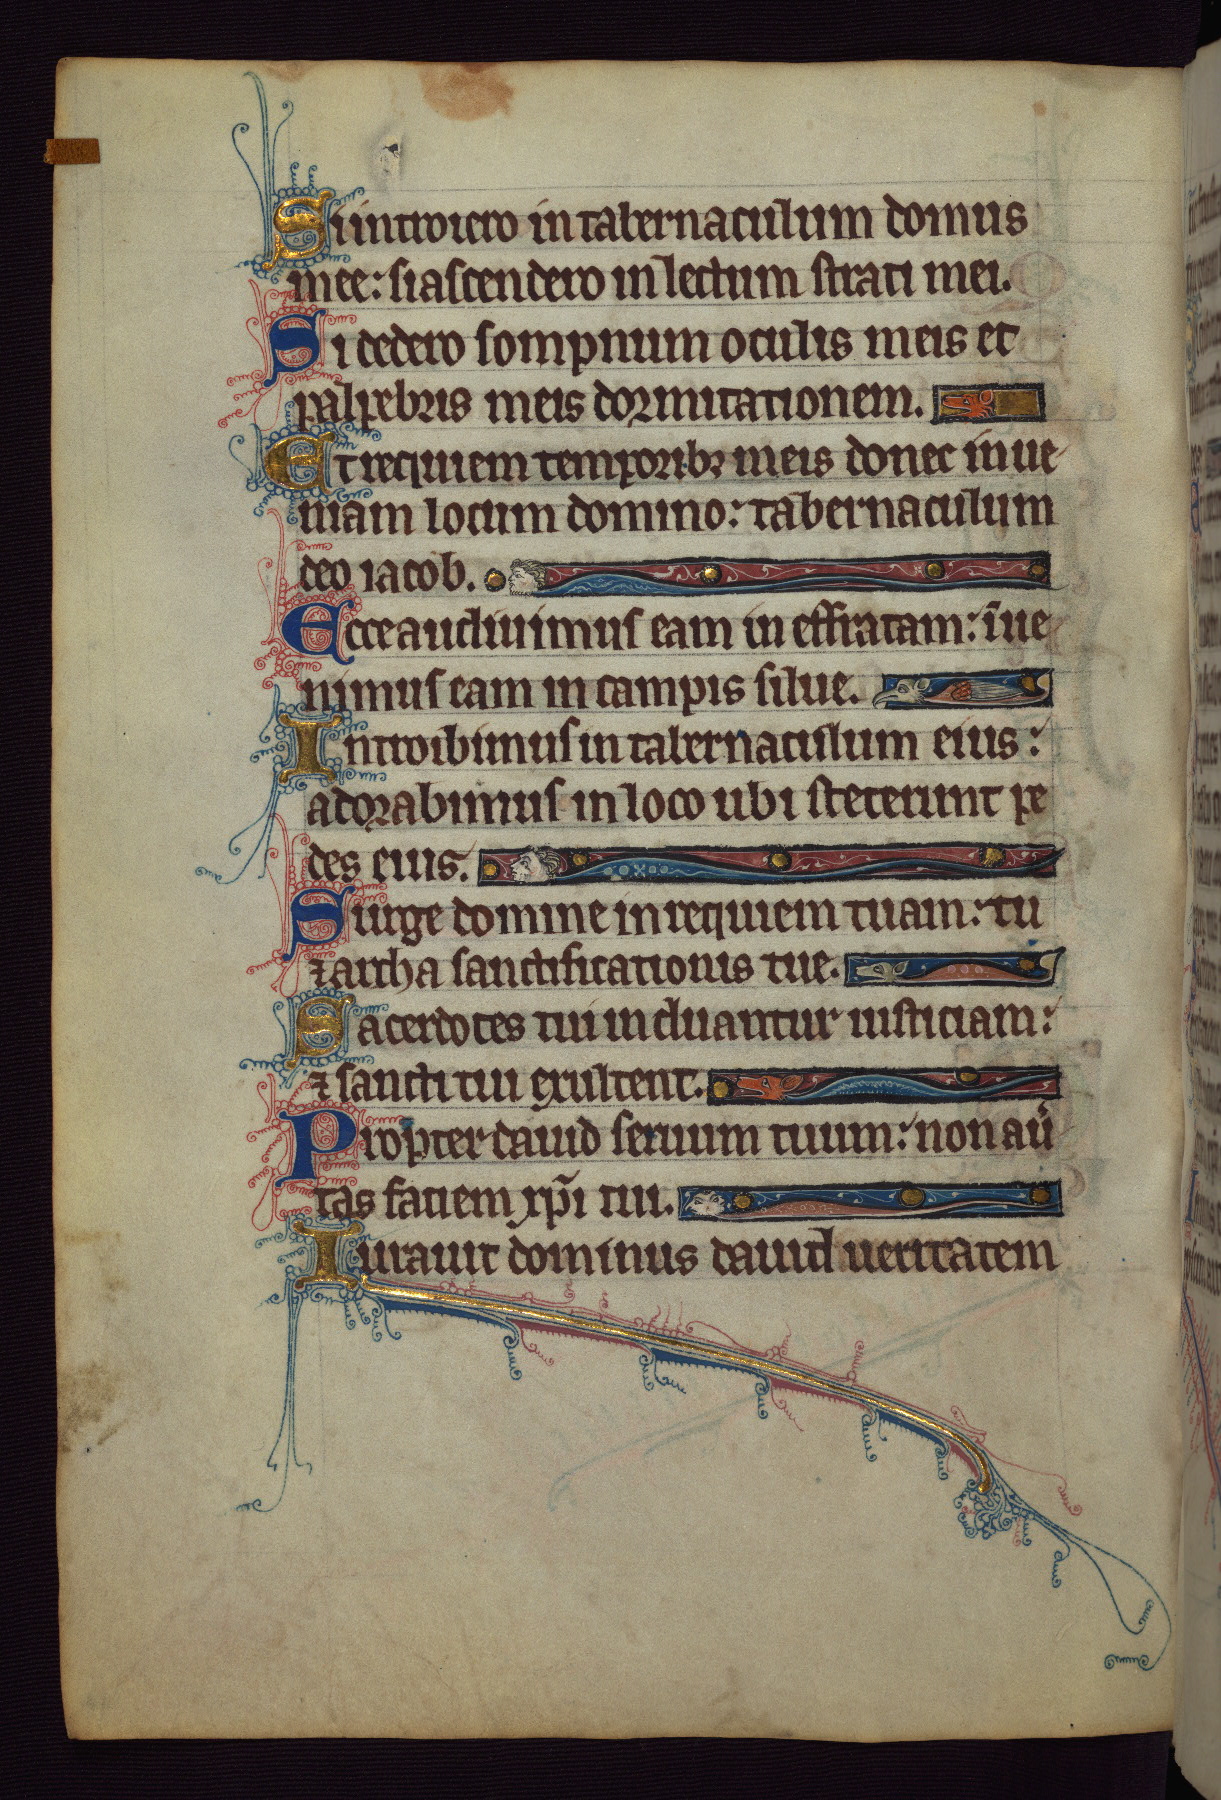 Si introiero in tabernaculum domus
mee: si ascendero in lectum strati mei.
Si dedero sompnum oculis meis et
palpebris meis dormitationem.
Et requiem temporibꝫ meis donec inue
niam locum domino: tabernaculum
deo iacob.
Ecce audiuimus eam in effratam: īue
nimus eam in campis silue.
Introibimus in tabernaculum eius:
adorabimus in loco ubi steterunt pe
des eius.
Surge domine in requiem tuam: tu
⁊ archa sanctificationis tue.
Sacerdotes tui induantur iusticiam:
⁊ sancti tui exultent.
Propter dauid seruum tuum: non au̅
tas faciem xp̅i tui.
Iurauit dominus dauid ueritatem